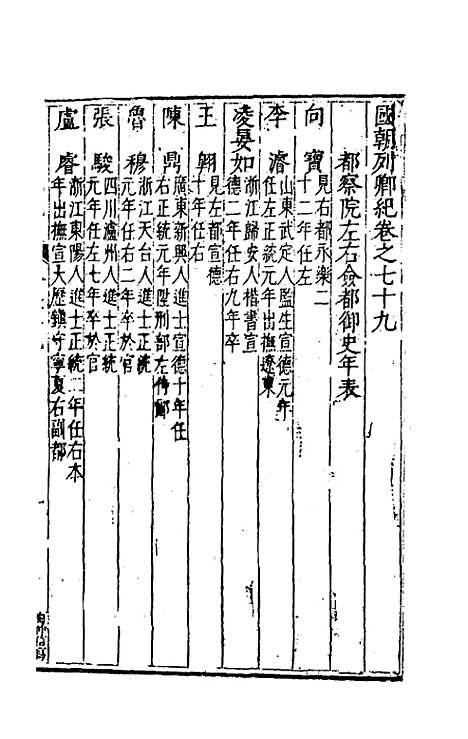 國朝列卿紀卷之七十九
都察院左右僉都御史年表
向寶
見右都永樂二
十二年任左
李濬
山東武定人監生宣德元年
任左正統元年出撫遼東
凌晏如
浙江歸安人楷書宣
德二年任右九年卒
王翺
見左都宣德
十年任右
陳鼎
廣東新興人進士宣德十年任
右正統元年陞刑部左侍郎
魯穆
浙江天台人進士正統
元年任右二年卒於官
張駿
四川瀘州人進士正統
元年任左七年卒於官
盧睿
浙江東陽人進士正統二年任右本
年出撫宣大歷鎮守寧夏右副都